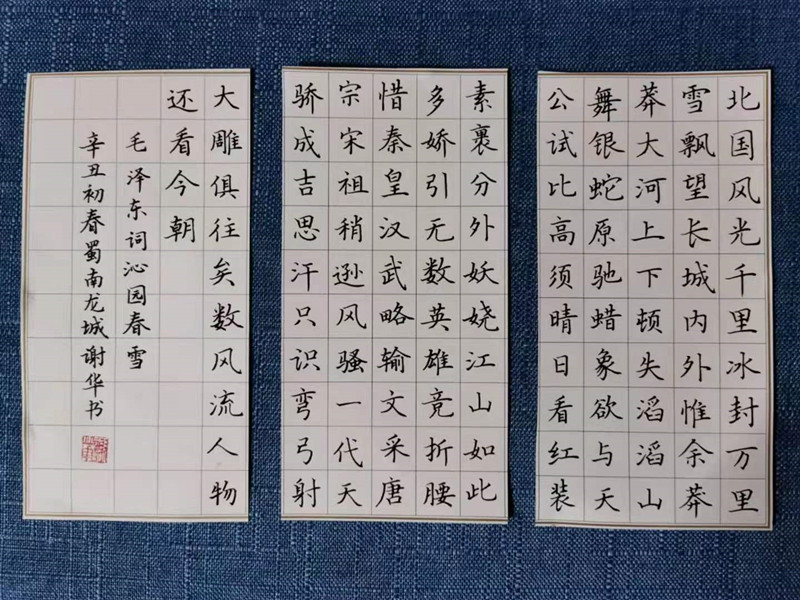 北国风光千里冰封万里
雪飘望长城内外惟余莽
莽大河上下顿失滔滔山
舞银蛇原驰蜡象欲与天
公试比高须晴日看红装
素裹分外妖娆江山如此
多娇引无数英雄竞折腰
惜秦皇汉武略输文采唐
宗宋祖稍逊风骚一代天
骄成吉思汗只识弯弓射
大雕俱往矣数风流人物
还看今朝
毛泽东词沁园春雪
辛丑初春蜀南龙城谢华书